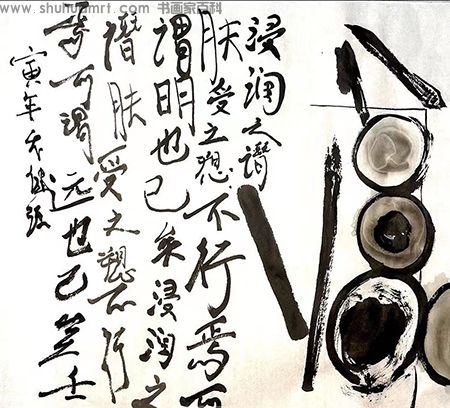 www.shuhuamrt.com 书画家百科
浸润之谮
肤受之愬不行焉可
谓明也已矣浸润之
谮肤受之愬不行
焉可谓远也已矣壬
寅年